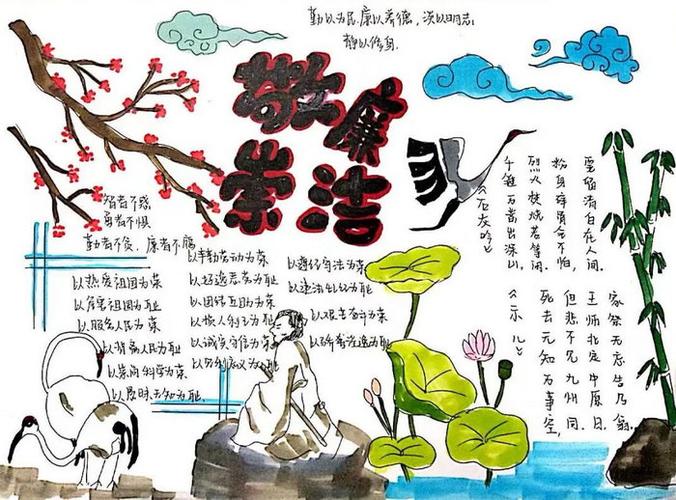 勤以为民，廉以养德，淡以明志，
静以修身。
敬廉
崇洁
智者不惑
勇者不惧
勤者不贪，廉者不腐
以热爱祖国为荣
以危害祖国为耻
以服务人民为荣
以背离人民为耻
以崇尚科学为荣
以愚昧无知为耻
以辛勤劳动为荣
以好逸恶劳为耻
以团结互助为荣
以损人利己为耻
以诚实守信为荣
以见利忘义为耻
以遵纪守法为荣
以违法乱纪为耻
以艰苦奋斗为荣
以骄奢淫逸为耻
《石灰吟》
千锤万凿出深山，
烈火焚烧若等闲。
粉身碎骨全不怕，
要留清白在人间。
《示儿》
死去元知万事空，
但悲不见九州同。
王师北定中原日，
家祭无忘告乃翁。